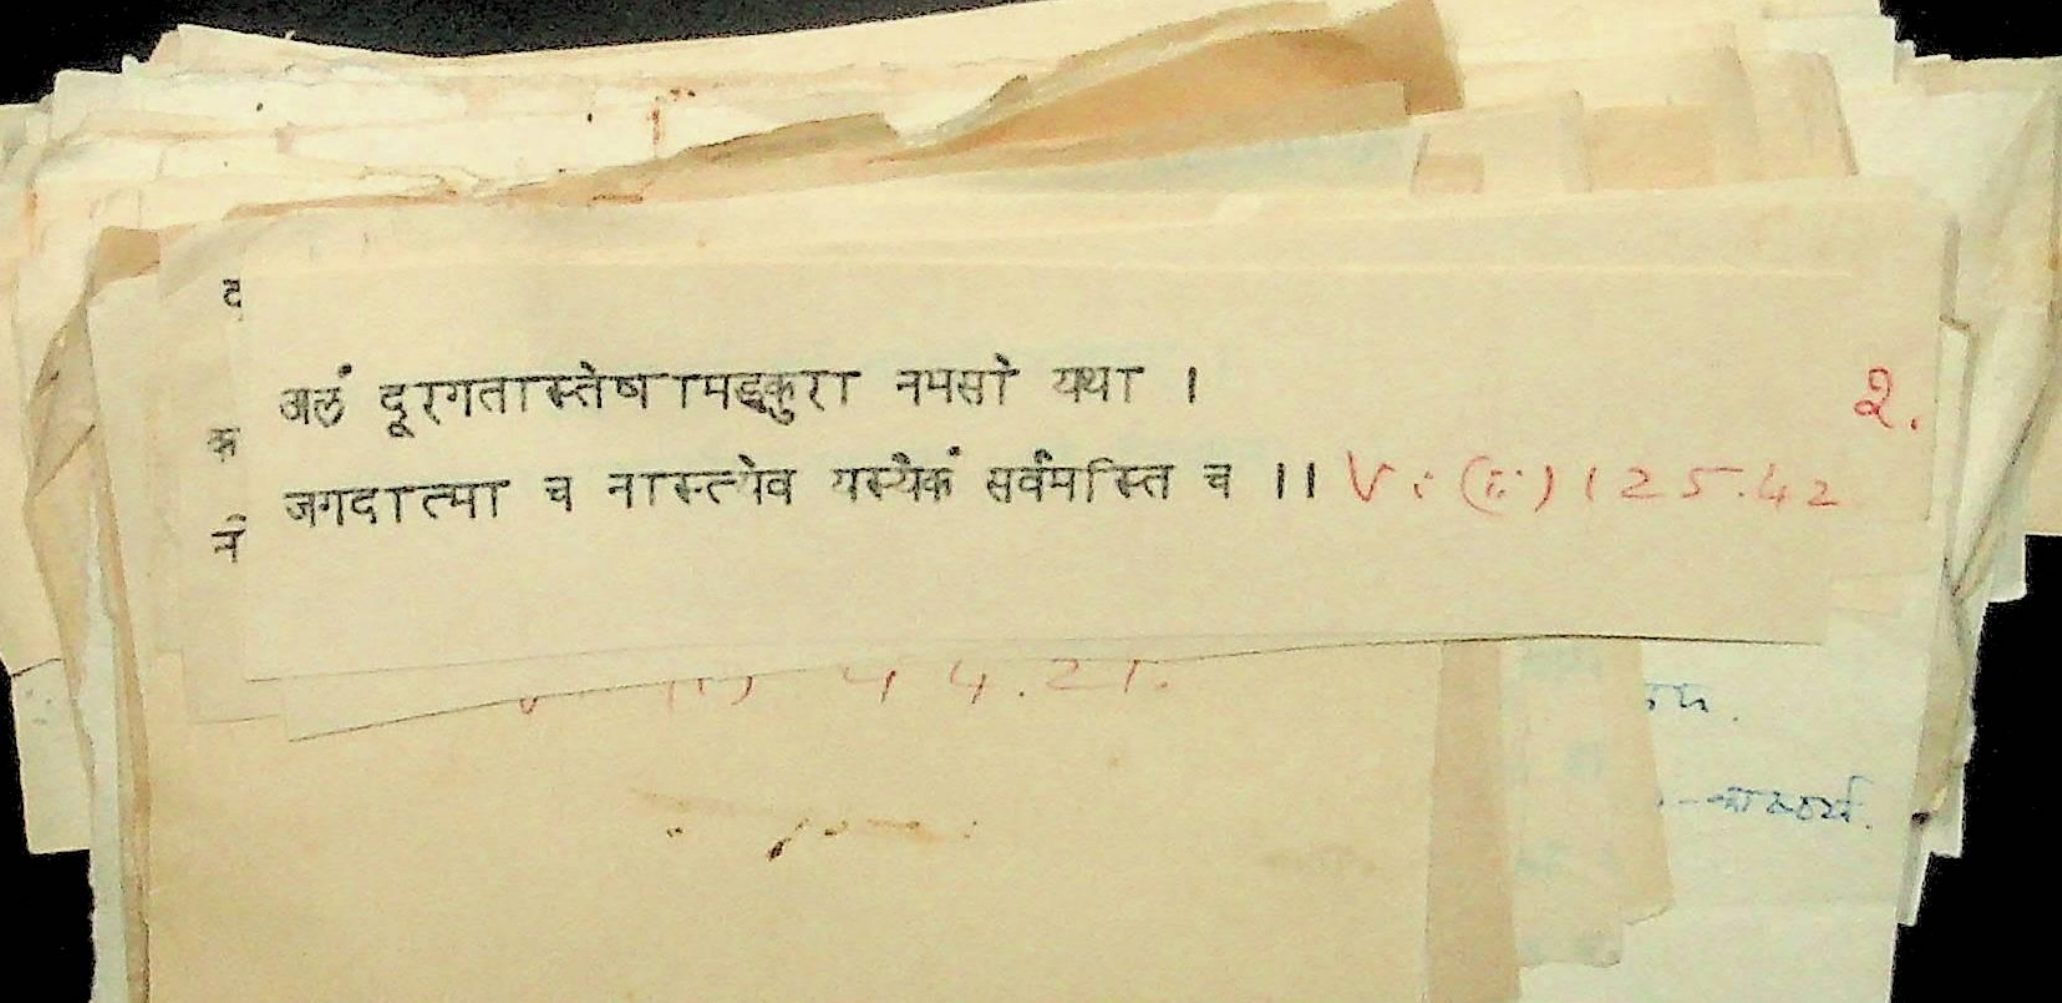 अलं दूरगतास्तेषामङ्कुरा नभसो यथा ।
२.
जगदात्मा च नास्त्येव यस्यैकं सर्वमस्ति च ।। V : (ii) 125.42
क
ने
44.21.